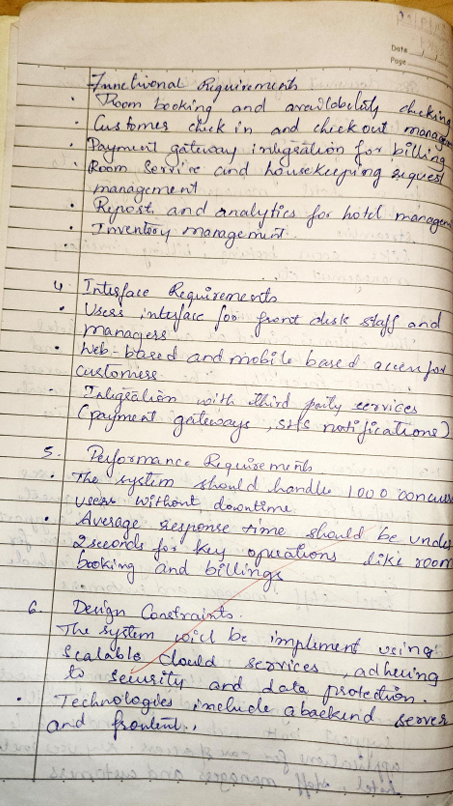 Date
Page
Functional Requirements
• Room booking and availability checking
• Customer check in and check out manage
• Payment gateway integration for billing
• Room Service and housekeeping request
management
• Report and analytics for hotel managem
• Inventory management.
•
4. Interface Requirements
• Users interface for front disk staff and
managers
• Web-based and mobile based access for
customers
• Integration with third party services
(payment gateways, SMS notifications)
5. Performance Requirements
• The system should handle 1000 concur
users without downtime
• Average response time should be under
2seconds for key operations like room
booking and billings
6. Design Constraints.
The system will be implement using
Scalable Cloud services, adhering
to security and data protection.
• Technologies include a backend server
and frontent.